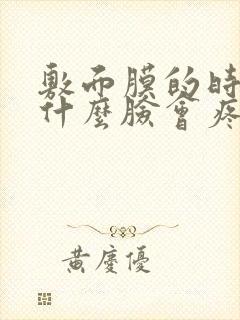 敷面膜的時
什麼臉會疼
黃慶優